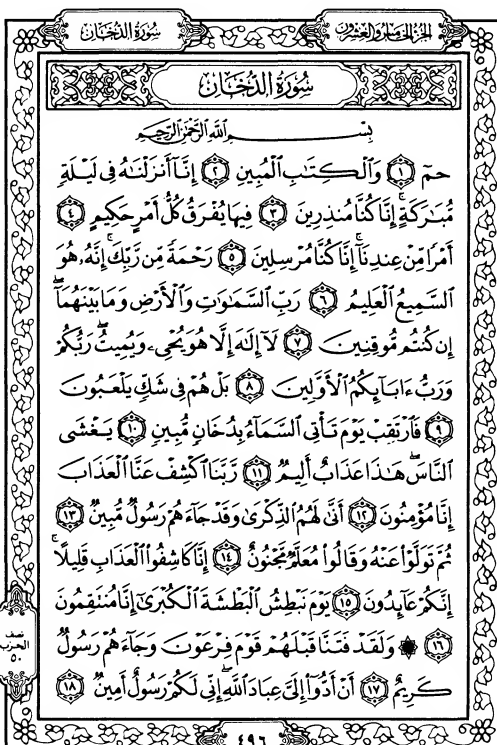 سُورَةُ الدُّخَانِ الجُزْءُ الخَامِسُ وَالعِشْرُونَ
سُورَةُ الدُّخَانِ
بِسْمِ اللَّهِ الرَّحْمَٰنِ الرَّحِيمِ
حمٓ ١ وَٱلْكِتَٰبِ ٱلْمُبِينِ ٢ إِنَّآ أَنزَلْنَٰهُ فِى لَيْلَةٍ
مُّبَٰرَكَةٍۚ إِنَّا كُنَّا مُنذِرِينَ ٣ فِيهَا يُفْرَقُ كُلُّ أَمْرٍ حَكِيمٍ ٤
أَمْرًا مِّنْ عِندِنَآۚ إِنَّا كُنَّا مُرْسِلِينَ ٥ رَحْمَةً مِّن رَّبِّكَۚ إِنَّهُۥ هُوَ
ٱلسَّمِيعُ ٱلْعَلِيمُ ٦ رَبِّ ٱلسَّمَٰوَٰتِ وَٱلْأَرْضِ وَمَا بَيْنَهُمَآۖ
إِن كُنتُم مُّوقِنِينَ ٧ لَآ إِلَٰهَ إِلَّا هُوَ يُحْىِۦ وَيُمِيتُۖ رَبُّكُمْ
وَرَبُّ ءَابَآئِكُمُ ٱلْأَوَّلِينَ ٨ بَلْ هُمْ فِى شَكٍّ يَلْعَبُونَ
٩ فَٱرْتَقِبْ يَوْمَ تَأْتِى ٱلسَّمَآءُ بِدُخَانٍ مُّبِينٍ ١٠ يَغْشَى
ٱلنَّاسَۖ هَٰذَا عَذَابٌ أَلِيمٌ ١١ رَّبَّنَا ٱكْشِفْ عَنَّا ٱلْعَذَابَ
إِنَّا مُؤْمِنُونَ ١٢ أَنَّىٰ لَهُمُ ٱلذِّكْرَىٰ وَقَدْ جَآءَهُمْ رَسُولٌ مُّبِينٌ ١٣
ثُمَّ تَوَلَّوْا۟ عَنْهُ وَقَالُوا۟ مُعَلَّمٌ مَّجْنُونٌ ١٤ إِنَّا كَاشِفُوا۟ ٱلْعَذَابِ قَلِيلًاۚ
إِنَّكُمْ عَآئِدُونَ ١٥ يَوْمَ نَبْطِشُ ٱلْبَطْشَةَ ٱلْكُبْرَىٰٓ إِنَّا مُنتَقِمُونَ
١٦ ۞ وَلَقَدْ فَتَنَّا قَبْلَهُمْ قَوْمَ فِرْعَوْنَ وَجَآءَهُمْ رَسُولٌ
كَرِيمٌ ١٧ أَنْ أَدُّوٓا۟ إِلَىَّ عِبَادَ ٱللَّهِۖ إِنِّى لَكُمْ رَسُولٌ أَمِينٌ ١٨
نصف
الحزب
٥٠
٤٩٦